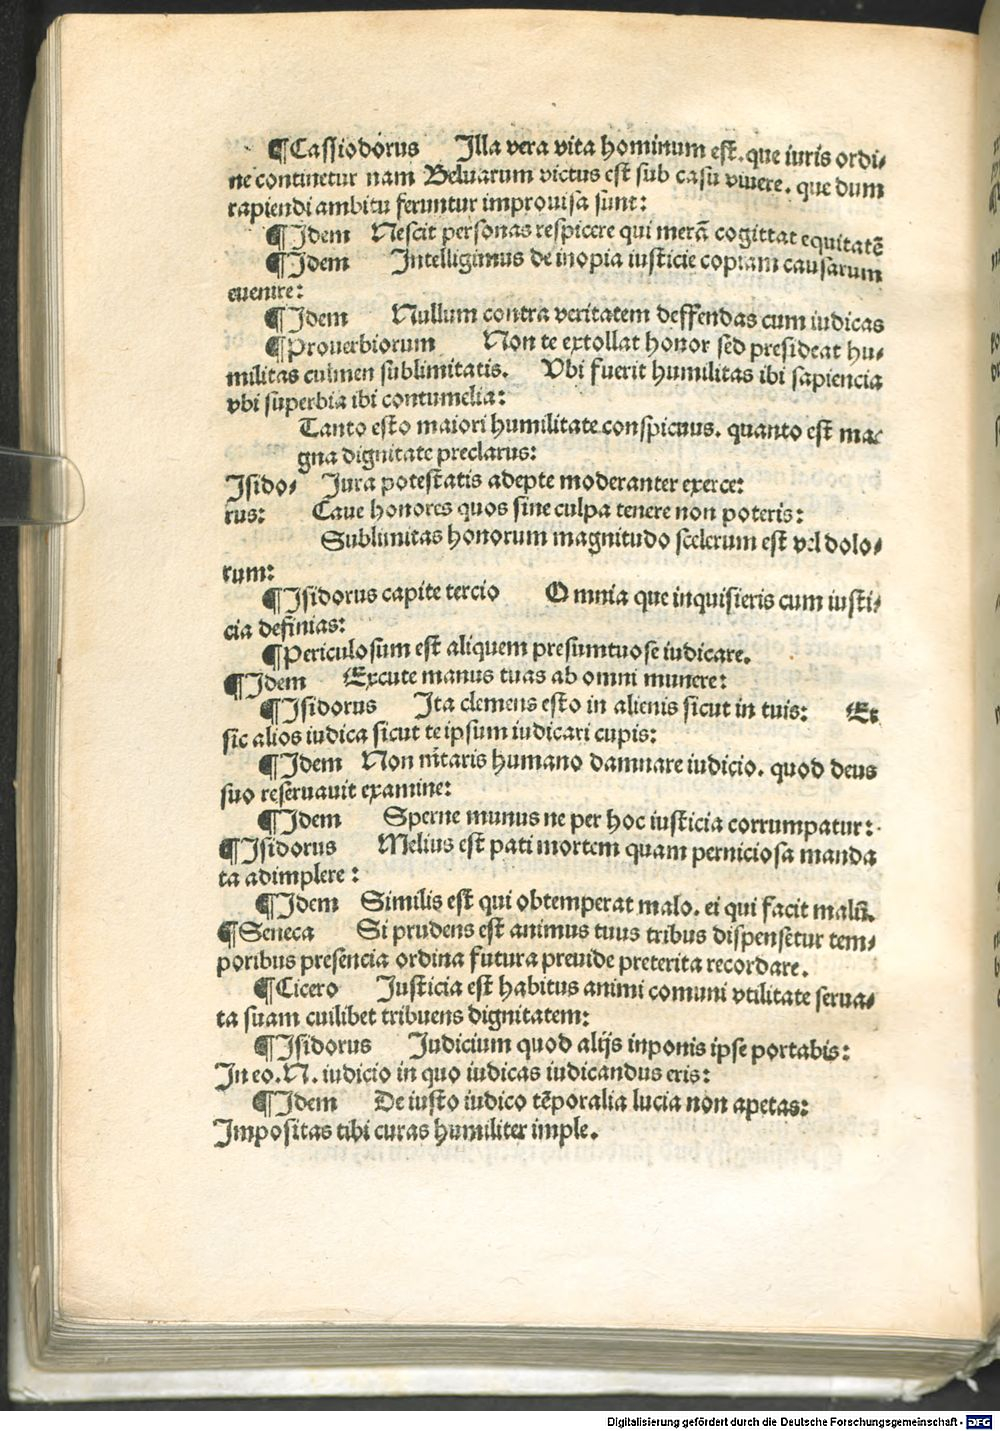 ¶Cassiodorus Illa vera vita hominum est. que iuris ordi⸗
ne continetur nam Beluarum victus est sub casu viuere. que dum
rapiendi ambitu feruntur improuisa sunt:
¶Idem Nescit personas respicere qui merā cogittat equitatē
¶Idem Intelligimus de inopia iusticie copiam causarum
euenire:
¶Idem Nullum contra veritatem deffendas cum iudicas
¶Prouerbiorum Non te extollat honor sed presideat hu⸗
militas culmen sublimitatis. Vbi fuerit humilitas ibi sapiencia
vbi superbia ibi contumelia:
Tanto esto maiori humilitate conspicuus. quanto est ma⸗
gna dignitate preclarus:
Isido⸗ Jura potestatis adepte moderanter exerce:
rus: Caue honores quos sine culpa tenere non poteris:
Sublimitas honorum magnitudo scelerum est vel dolo⸗
rum:
¶Isidorus capite tercio Omnia que inquisieris cum iusti⸗
cia definias:
¶Periculosum est aliquem presumtuose iudicare.
¶Idem Excute manus tuas ab omni munere:
¶Isidorus Ita clemens esto in alienis sicut in tuis: Et
sic alios iudica sicut te ipsum iudicari cupis:
¶Idem Non nītaris humano damnare iudicio. quod deus
suo reseruauit examine:
¶Idem Sperne munus ne per hoc iusticia corrumpatur:
¶Isidorus Melius est pati mortem quam perniciosa manda
ta adimplere:
¶Idem Similis est qui obtemperat malo. ei qui facit malū.
¶Seneca Si prudens est animus tuus tribus dispensetur tem⸗
poribus presencia ordina futura preuide preterita recordare.
¶Cicero Iusticia est habitus animi comuni vtilitate serua⸗
ta suam cuilibet tribuens dignitatem:
¶Isidorus Judicium quod alijs inponis ipse portabis:
In eo. N. iudicio in quo iudicas iudicandus eris:
¶Idem De iusto iudico tēporalia lucia non apetas:
Impositas tibi curas humiliter imple.
Digitalisierung gefördert durch die Deutsche Forschungsgemeinschaft - DFG